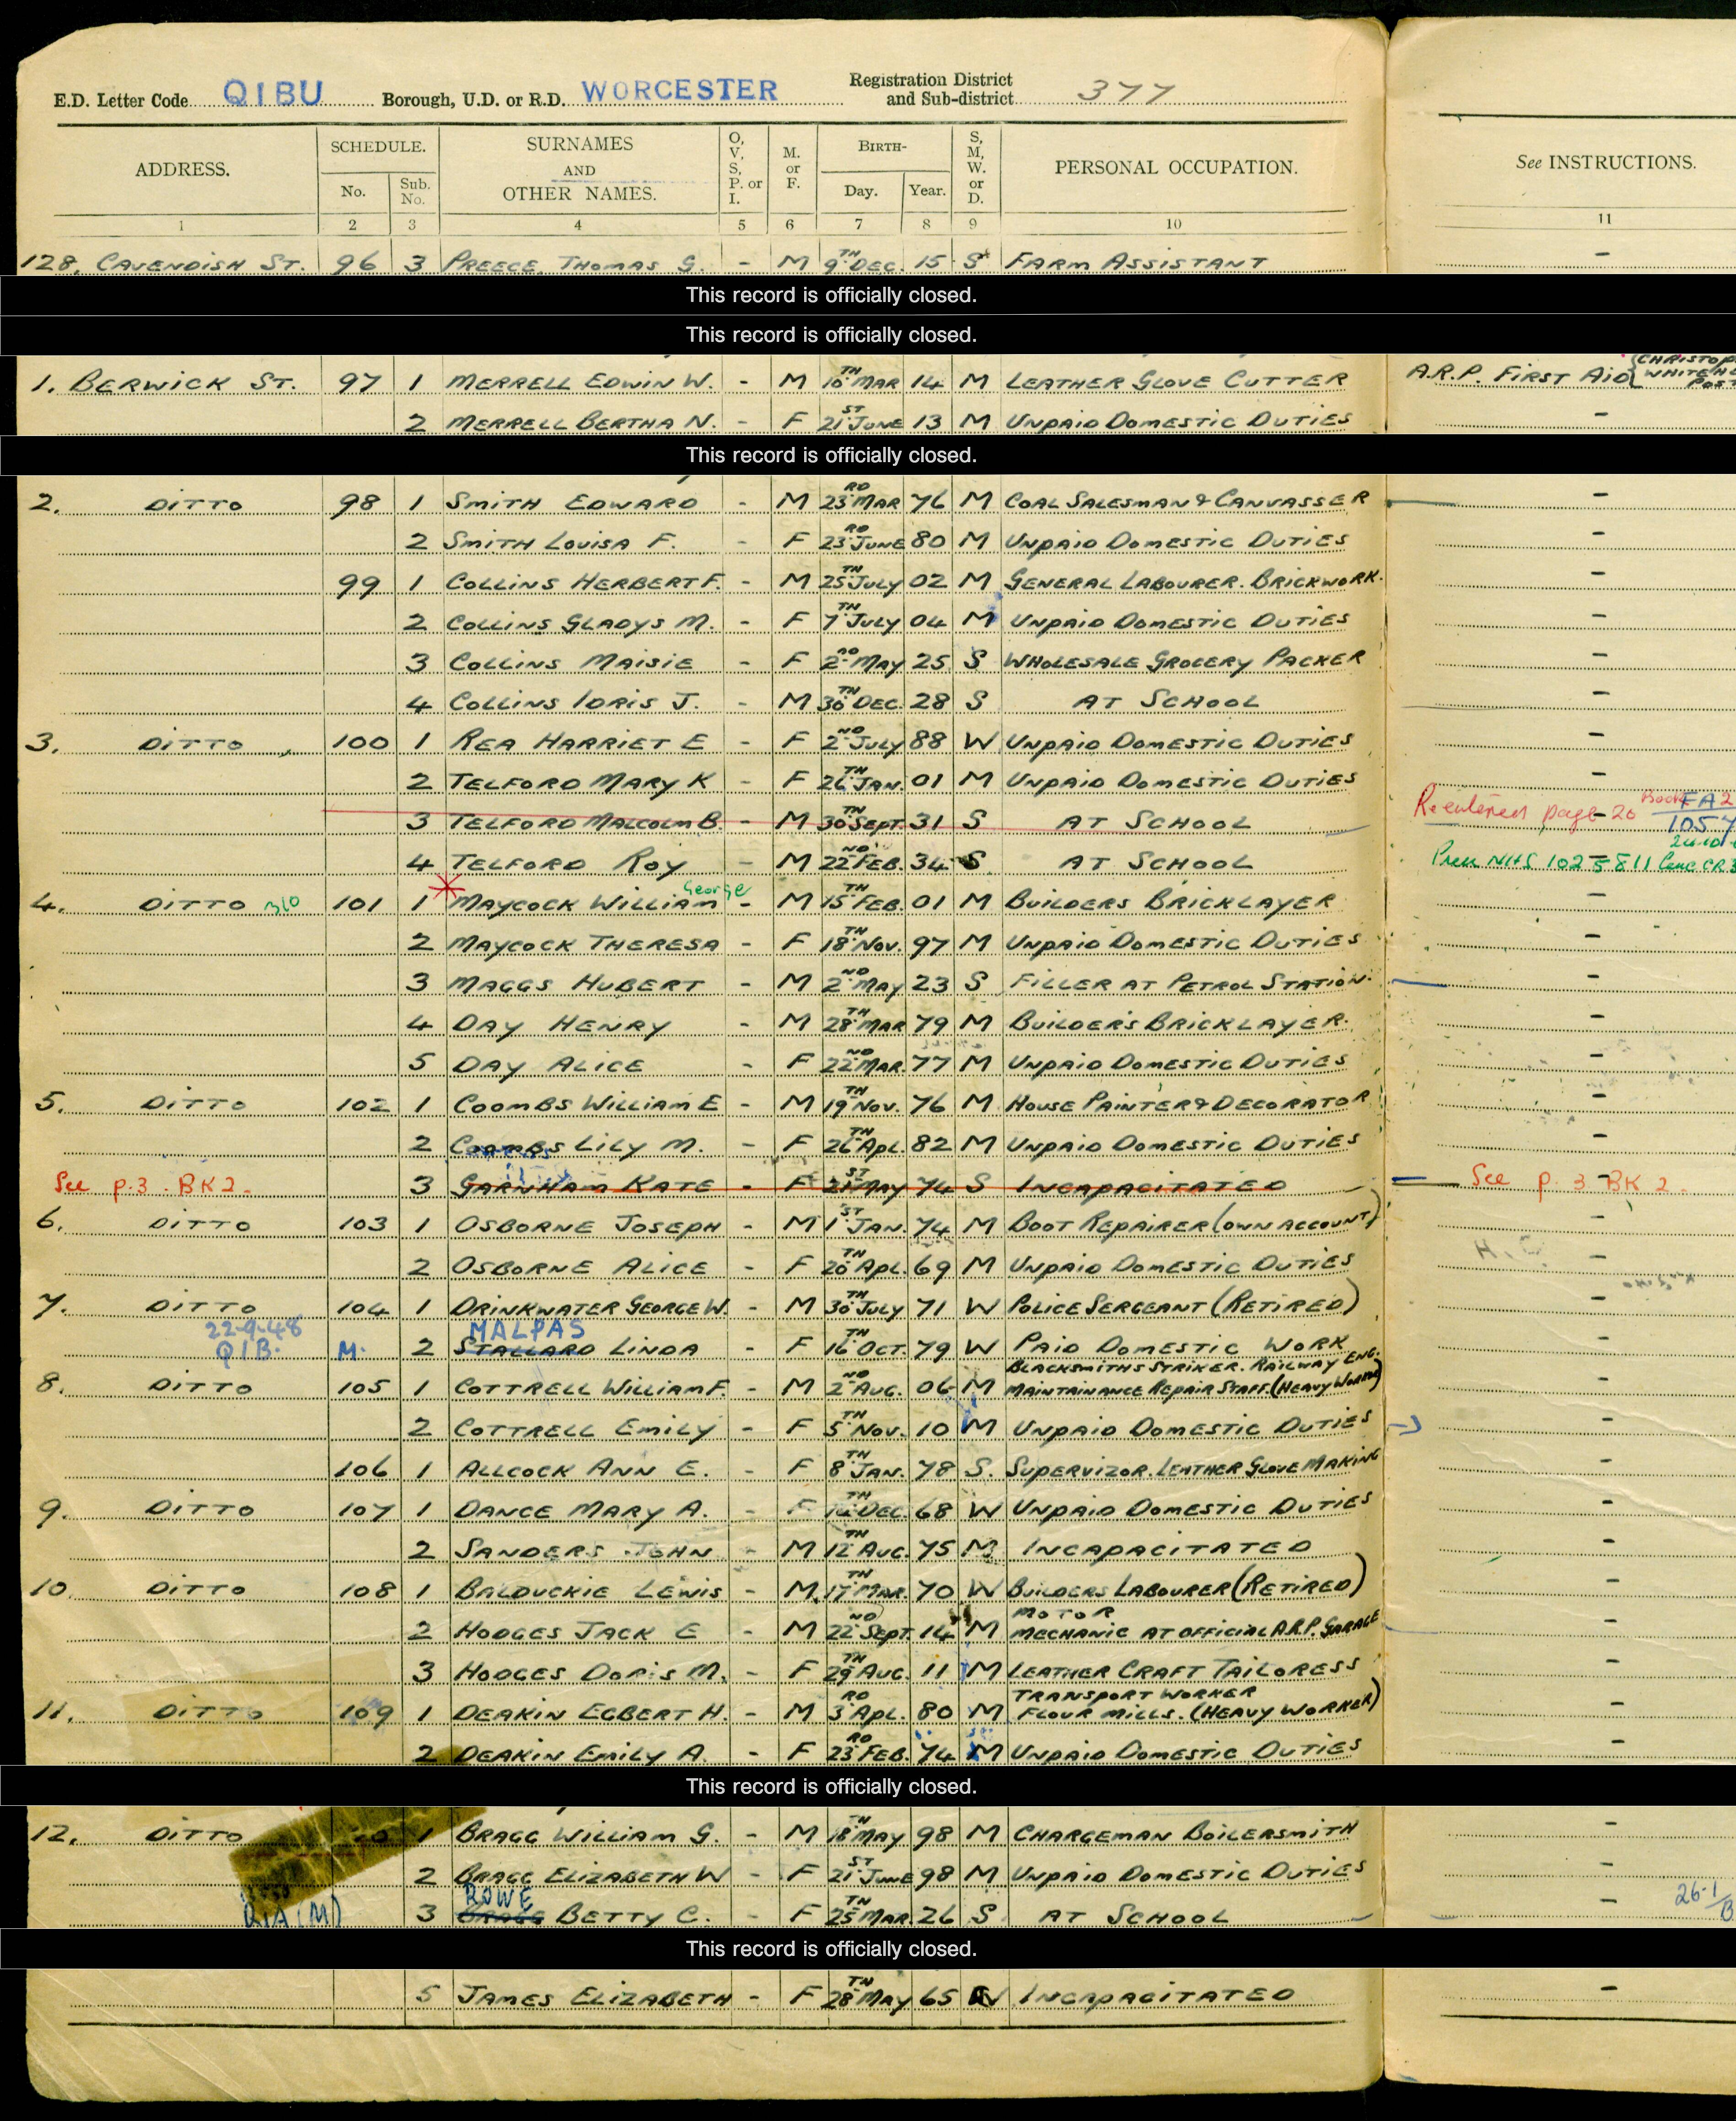 E.D. Letter Code QIBU Borough, U.D. or R.D. WORCESTER Registration District and Sub-district 377
ADDRESS. SCHEDULE. No. Sub. No. SURNAMES AND OTHER NAMES. O, V, S, P. or I. M. or F. BIRTH- Day. Year. S, M, W. or D. PERSONAL OCCUPATION. See INSTRUCTIONS.
1 2 3 4 5 6 7 8 9 10 11
128, CAVENDISH ST. 96 3 PREECE, THOMAS G. - M 9TH DEC. 15 S FARM ASSISTANT -
This record is officially closed.
This record is officially closed.
1. BERWICK ST. 97 1 MERRELL EDWIN W. - M 10TH MAR 14 M LEATHER GLOVE CUTTER A.R.P. FIRST AID
2 MERRELL BERTHA N. - F 21ST JUNE 13 M UNPAID DOMESTIC DUTIES -
This record is officially closed.
2. DITTO 98 1 SMITH EDWARD - M 23RD MAR 76 M COAL SALESMAN & CANVASSER -
2 SMITH LOUISA F. - F 23RD JUNE 80 M UNPAID DOMESTIC DUTIES -
99 1 COLLINS HERBERT F. - M 25TH JULY 02 M GENERAL LABOURER. BRICKWORK. -
2 COLLINS GLADYS M. - F 7TH JULY 04 M UNPAID DOMESTIC DUTIES -
3 COLLINS MAISIE - F 2ND MAY 25 S WHOLESALE GROCERY PACKER -
4 COLLINS IDRIS J. - M 30TH DEC. 28 S AT SCHOOL -
3. DITTO 100 1 REA HARRIET E - F 2ND JULY 88 W UNPAID DOMESTIC DUTIES -
2 TELFORD MARY K - F 26TH JAN. 01 M UNPAID DOMESTIC DUTIES -
3 TELFORD MALCOLM B. - M 30TH SEPT. 31 S AT SCHOOL - Reentered page 20 Book
4 TELFORD ROY - M 22ND FEB. 34 S. AT SCHOOL -
4. DITTO 101 1 MAYCOCK WILLIAM George - M 15TH FEB. 01 M BUILDERS BRICKLAYER -
2 MAYCOCK THERESA - F 18TH NOV. 97 M UNPAID DOMESTIC DUTIES -
3 MAGGS HUBERT - M 2ND MAY 23 S FILLER AT PETROL STATION. -
4 DAY HENRY - M 28TH MAR 79 M BUILDER'S BRICKLAYER. -
5 DAY ALICE - F 22ND MAR. 77 M UNPAID DOMESTIC DUTIES -
5. DITTO 102 1 COOMBS WILLIAM E - M 19TH NOV. 76 M HOUSE PAINTER & DECORATOR -
2 COOMBS LILY M. - F 26TH APL. 82 M UNPAID DOMESTIC DUTIES -
See p.3 BK 2. 3 GARNHAM KATE - F 21ST MAY 74 S INCAPACITATED - See p. 3 BK 2.
6. DITTO 103 1 OSBORNE JOSEPH - M 1ST JAN. 74 M BOOT REPAIRER (OWN ACCOUNT) -
2 OSBORNE ALICE - F 20TH APL. 69 M UNPAID DOMESTIC DUTIES -
7. DITTO 104 1 DRINKWATER GEORGE W. - M 30TH JULY 71 W POLICE SERGEANT (RETIRED) -
22-9-48 MALPAS
QIB. M. 2 STALLARD LINDA - F 16TH OCT. 79 W PAID DOMESTIC WORK -
BLACKSMITHS STRIKER. RAILWAY ENG.
8. DITTO 105 1 COTTRELL WILLIAM F. - M 2ND AUG. 06 M MAINTAINANCE REPAIR STAFF. (HEAVY WORKER) -
2 COTTRELL EMILY - F 5TH NOV. 10 M UNPAID DOMESTIC DUTIES -
106 1 ALLCOCK ANN E. - F 8TH JAN. 78 S. SUPERVIZOR. LEATHER GLOVE MAKING -
9. DITTO 107 1 DANCE MARY A. - F DEC. 68 W UNPAID DOMESTIC DUTIES -
2 SANDERS JOHN - M 12TH AUG. 75 M INCAPACITATED -
10. DITTO 108 1 BALDUCKIE LEWIS - M 17TH MAR. 70 W BUILDERS LABOURER (RETIRED) -
MOTOR
2 HODGES JACK E - M 22ND SEPT. 14 M MECHANIC AT OFFICIAL A.R.P. GARAGE -
3 HODGES DORIS M. - F 29TH AUG. 11 M LEATHER CRAFT TAILORESS -
TRANSPORT WORKER
11. DITTO 109 1 DEAKIN EGBERT H. - M 3RD APL. 80 M FLOUR MILLS. (HEAVY WORKER) -
2 DEAKIN EMILY A. - F 23RD FEB. 74 M UNPAID DOMESTIC DUTIES -
This record is officially closed.
12. DITTO 1 BRAGG WILLIAM G. - M 18TH MAY 98 M CHARGEMAN BOILERSMITH -
2 BRAGG ELIZABETH W - F 21ST JUNE 98 M UNPAID DOMESTIC DUTIES -
ROWE
3 BRAGG BETTY C. - F 25TH MAR. 26 S AT SCHOOL -
This record is officially closed.
5 JAMES ELIZABETH - F 28TH MAY 65 W INCAPACITATED -